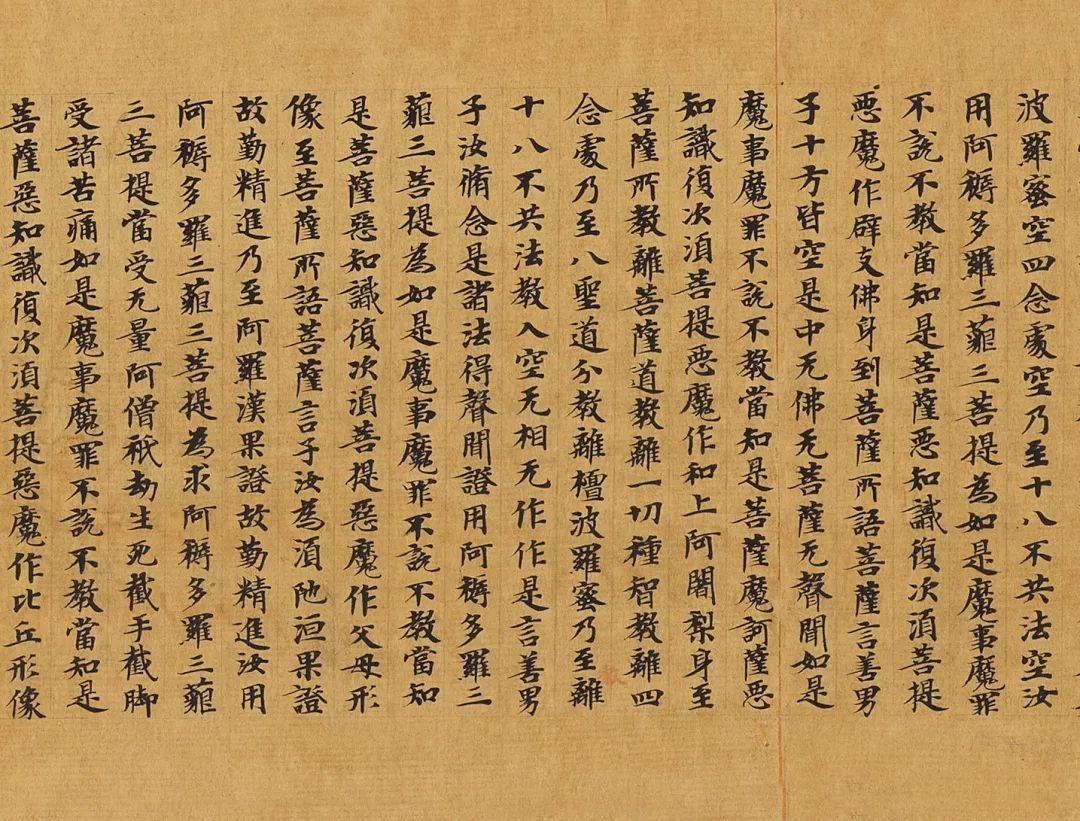 波羅蜜空四念處空乃至十八不共法空汝
用阿耨多羅三藐三菩提為如是魔事魔罪
不說不教當知是菩薩惡知識復次須菩提
惡魔作辟支佛身到菩薩所語菩薩言善男
子十方皆空是中无佛无菩薩无聲聞如是
魔事魔罪不說不教當知是菩薩魔訶薩惡
知識復次須菩提惡魔作和上阿闍梨身至
菩薩所教離菩薩道教離一切種智教離四
念處乃至八聖道分教離檀波羅蜜乃至離
十八不共法教入空无相无作作是言善男
子汝脩念是諸法得聲聞證用阿耨多羅三
藐三菩提為如是魔事魔罪不說不教當知
是菩薩惡知識復次須菩提惡魔作父母形
像至菩薩所語菩薩言子汝為須陁洹果證
故勤精進乃至阿羅漢果證故勤精進汝用
阿耨多羅三藐三菩提為求阿耨多羅三藐
三菩提當受无量阿僧祇劫生死截手截脚
受諸苦痛如是魔事魔罪不說不教當知是
菩薩惡知識復次須菩提惡魔作比丘形像